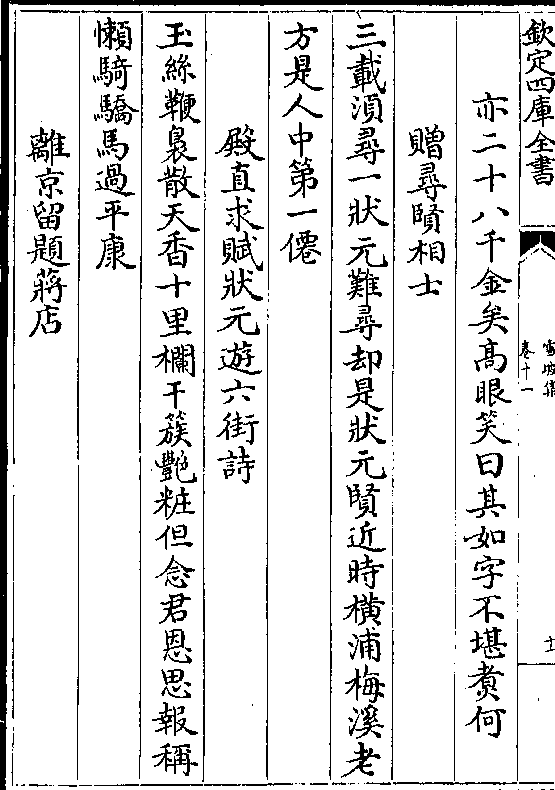 欽定四庫全書
雪坡集
卷十一
十一
亦二十八千金矣高眼笑曰其如字不堪煑何
贈尋賢相士
三載湏尋一狀元難尋却是狀元賢近時橫浦梅溪老
方是人中第一僊
殿直求賦狀元遊六街詩
玉絲鞭裊散天香十里欄干簇艷粧但念君恩思報稱
懶騎驕馬過平康
離京留題蔣店